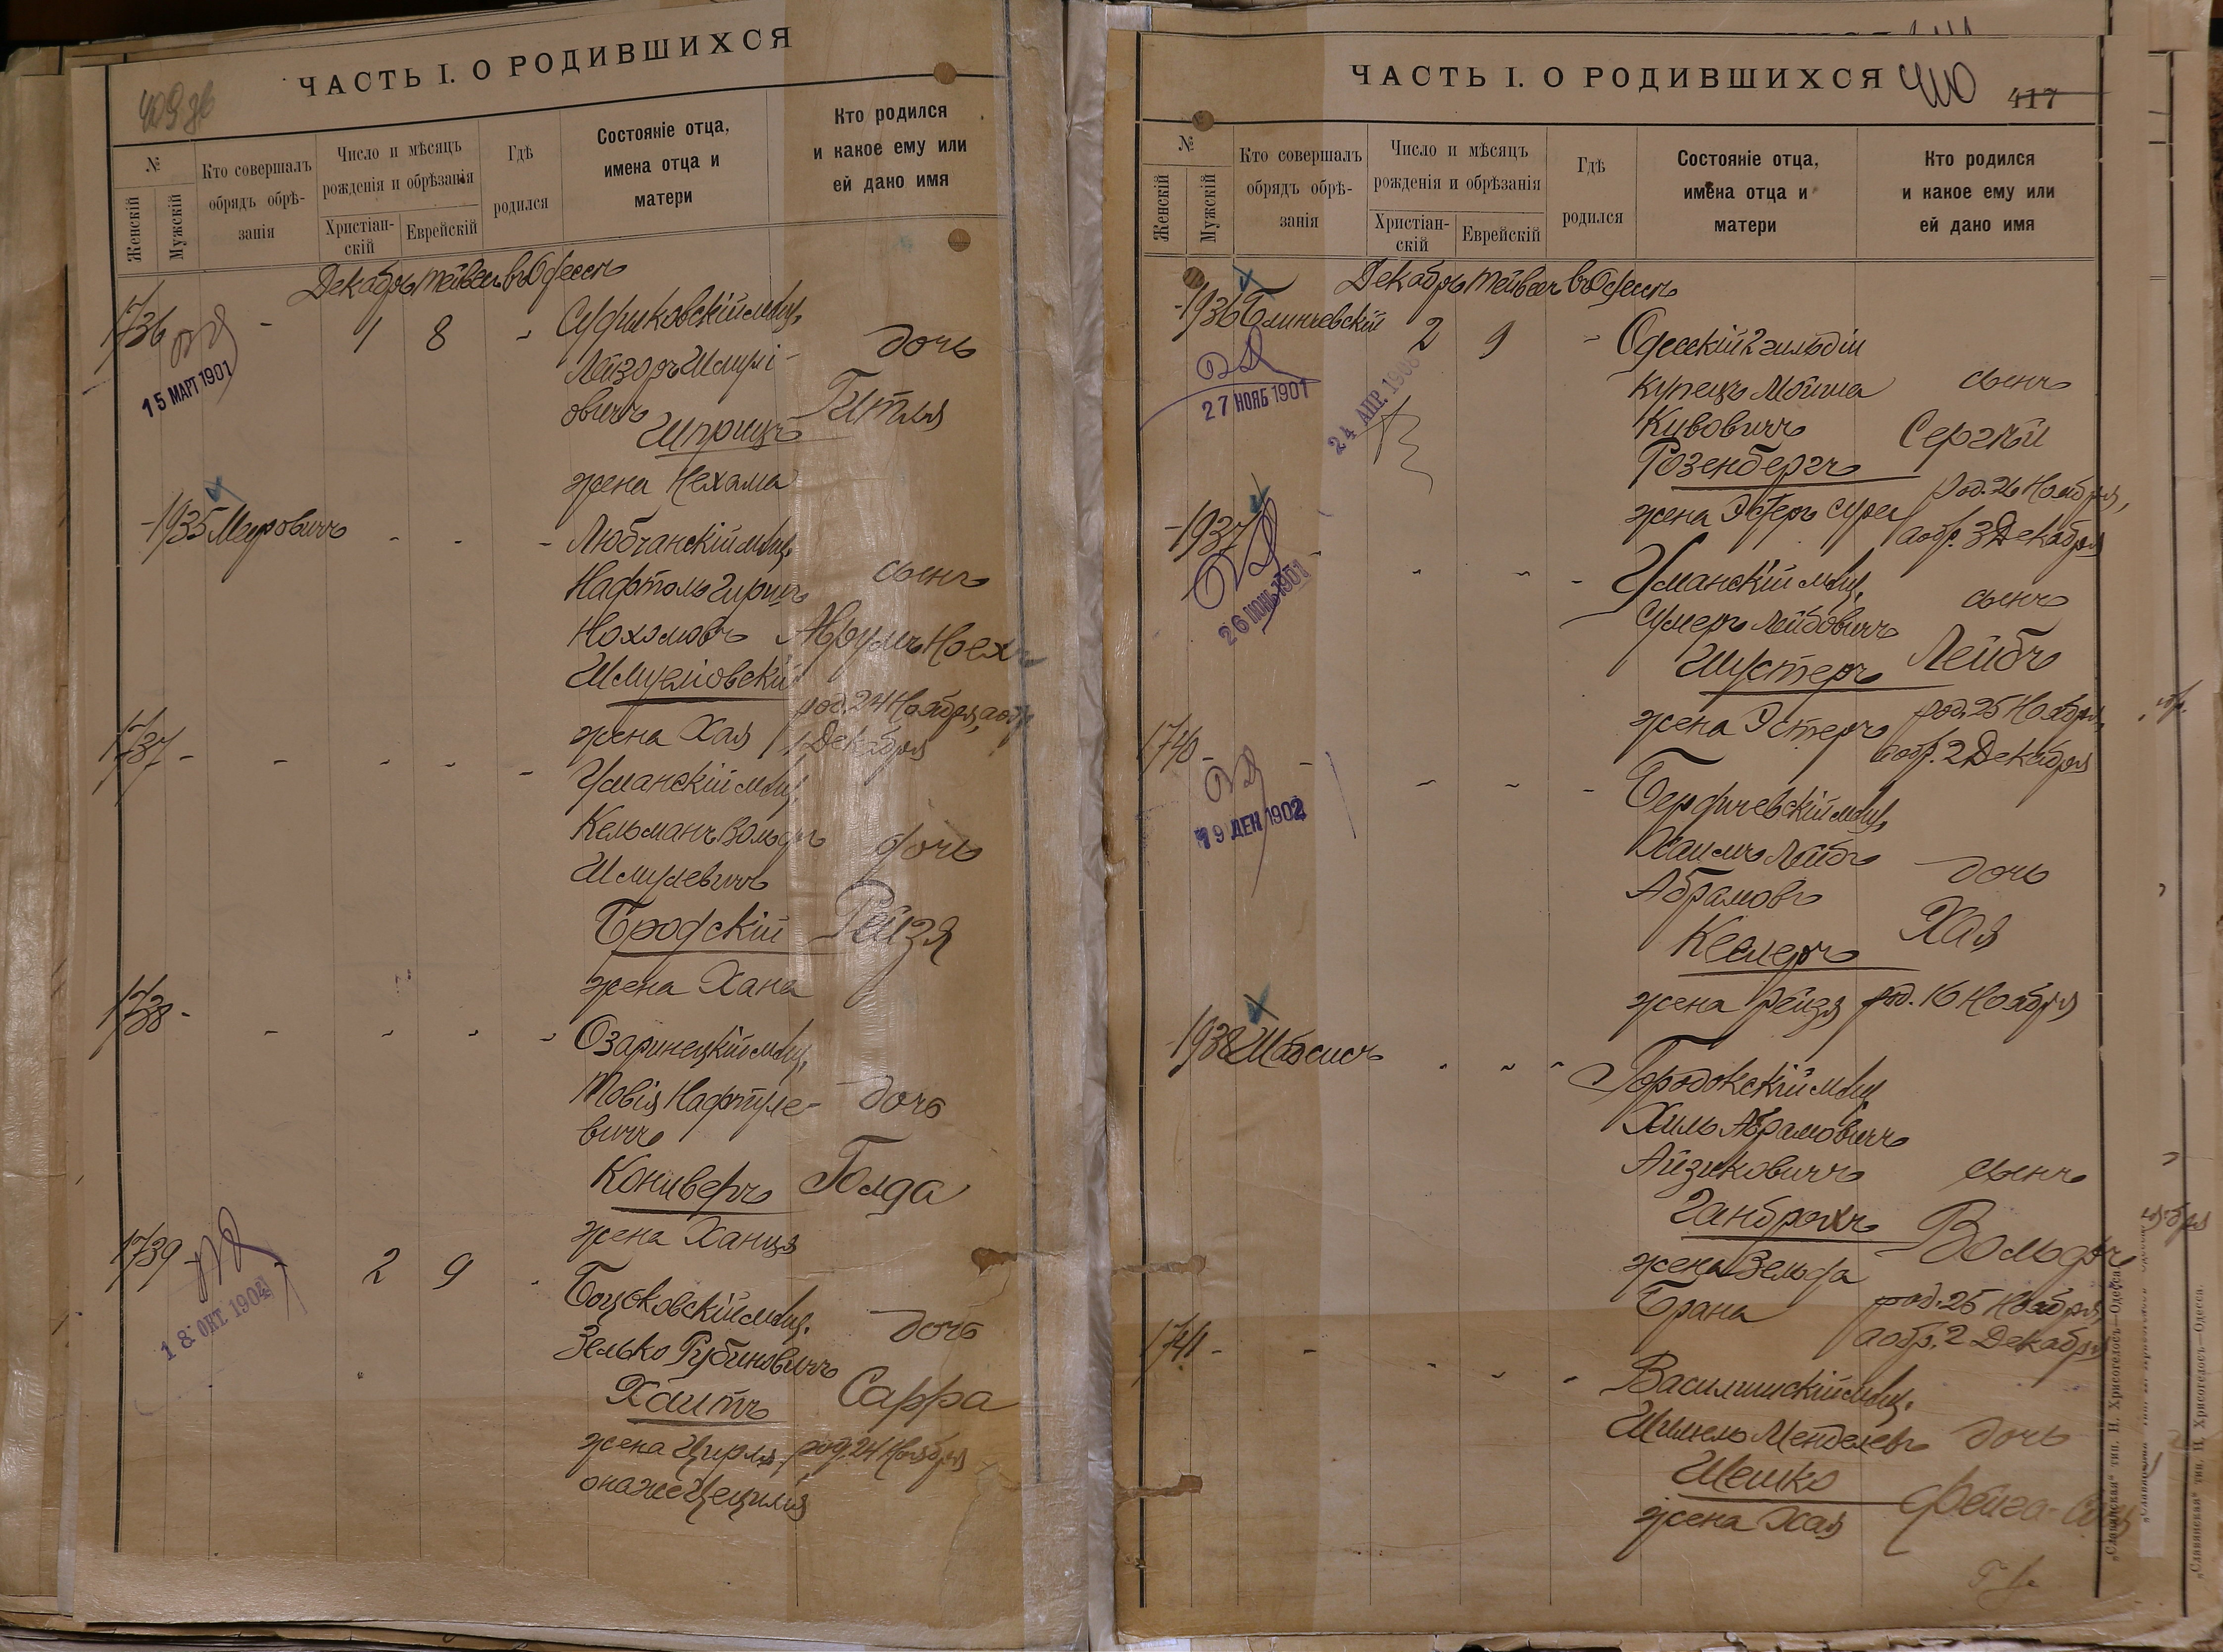 ЧАСТЬ I. О РОДИВШИХСЯ
№
Женскій
Мужскій
Кто совершалъ
обрядъ обрѣ-
занія
Число и мѣсяцъ
рожденія и обрѣзанія
Христіан-
скій
Еврейскій
Гдѣ
родился
Состояніе отца,
имена отца и
матери
Кто родился
и какое ему или
ей дано имя
Декабрь Тейвес въ Одессѣ
1736 - 1 8 -
15 МАРТ 1901
дочь
Гитля
Лейзоръ Шмулі-
овичъ
Шприцъ
жена Нехама
1935 Меировичъ - - -
Любчанскій мѣщ.
Нафтоль Гиршъ
Нохомовъ
Шмуеловскій
жена Хая
сынъ
Аврумъ Ноехъ
род. 24 Ноября, а обр.
1 Декабря
1737 - - - - -
Уманскій мѣщ.
Кельманъ Вольфъ
Шмулевичъ
Бродскій
жена Хана
дочь
Рейзя
1738 - - - - -
Озаринецкій мѣщ.
Товія Нафтуле-
вичъ
Конверъ
жена Ханця
дочь
Голда
1739 - 2 9 -
18 ОКТ 1902
мѣщ.
Зелько Рубиновичъ
Хаитъ
жена Цирля,
она же Цецилія
дочь
Сарра
род. 24 Ноября
ЧАСТЬ I. О РОДИВШИХСЯ
410
417
№
Женскій
Мужскій
Кто совершалъ
обрядъ обрѣ-
занія
Число и мѣсяцъ
рожденія и обрѣзанія
Христіан-
скій
Еврейскій
Гдѣ
родился
Состояніе отца,
имена отца и
матери
Кто родился
и какое ему или
ей дано имя
Декабрь Тейвес въ Одессѣ
1936 2 9 -
27 НОЯБ 1901
24 АПР. 1908
Одесскій 2 гильдіи
купецъ Мойша
Кивовичъ
Розенбергъ
жена Эстеръ Сура
сынъ
Сергѣй
род. 26 Ноября,
а обр. 3 Декабря
1937 - - - -
26 ІЮНЬ 1901
Уманскій мѣщ.
Сумеръ Лейбовичъ
Шустеръ
жена Эстеръ
сынъ
Лейбъ
род. 25 Ноября,
а обр. 2 Декабря
1740 - - - - -
19 ДЕК 1902
Бердичевскій мѣщ.
Хаимъ Лейбъ
Абрамовъ
Кеслеръ
жена Рейзя
дочь
Хая
род. 16 Ноября
1938 Шабсисъ - - -
Городокскій мѣщ.
Хиль Абрамовичъ
Айзиковичъ
Ганброхъ
жена Зельда
Брана
сынъ
Вольфъ
род. 25 Ноября,
а обр. 2 Декабря
1741 - - - - -
Василишскій мѣщ.
Шмиель Менделевъ
Шешко
жена Хая
дочь
Фейга-
„Славянская“ тип. Н. Хрисогелосъ—Одесса.